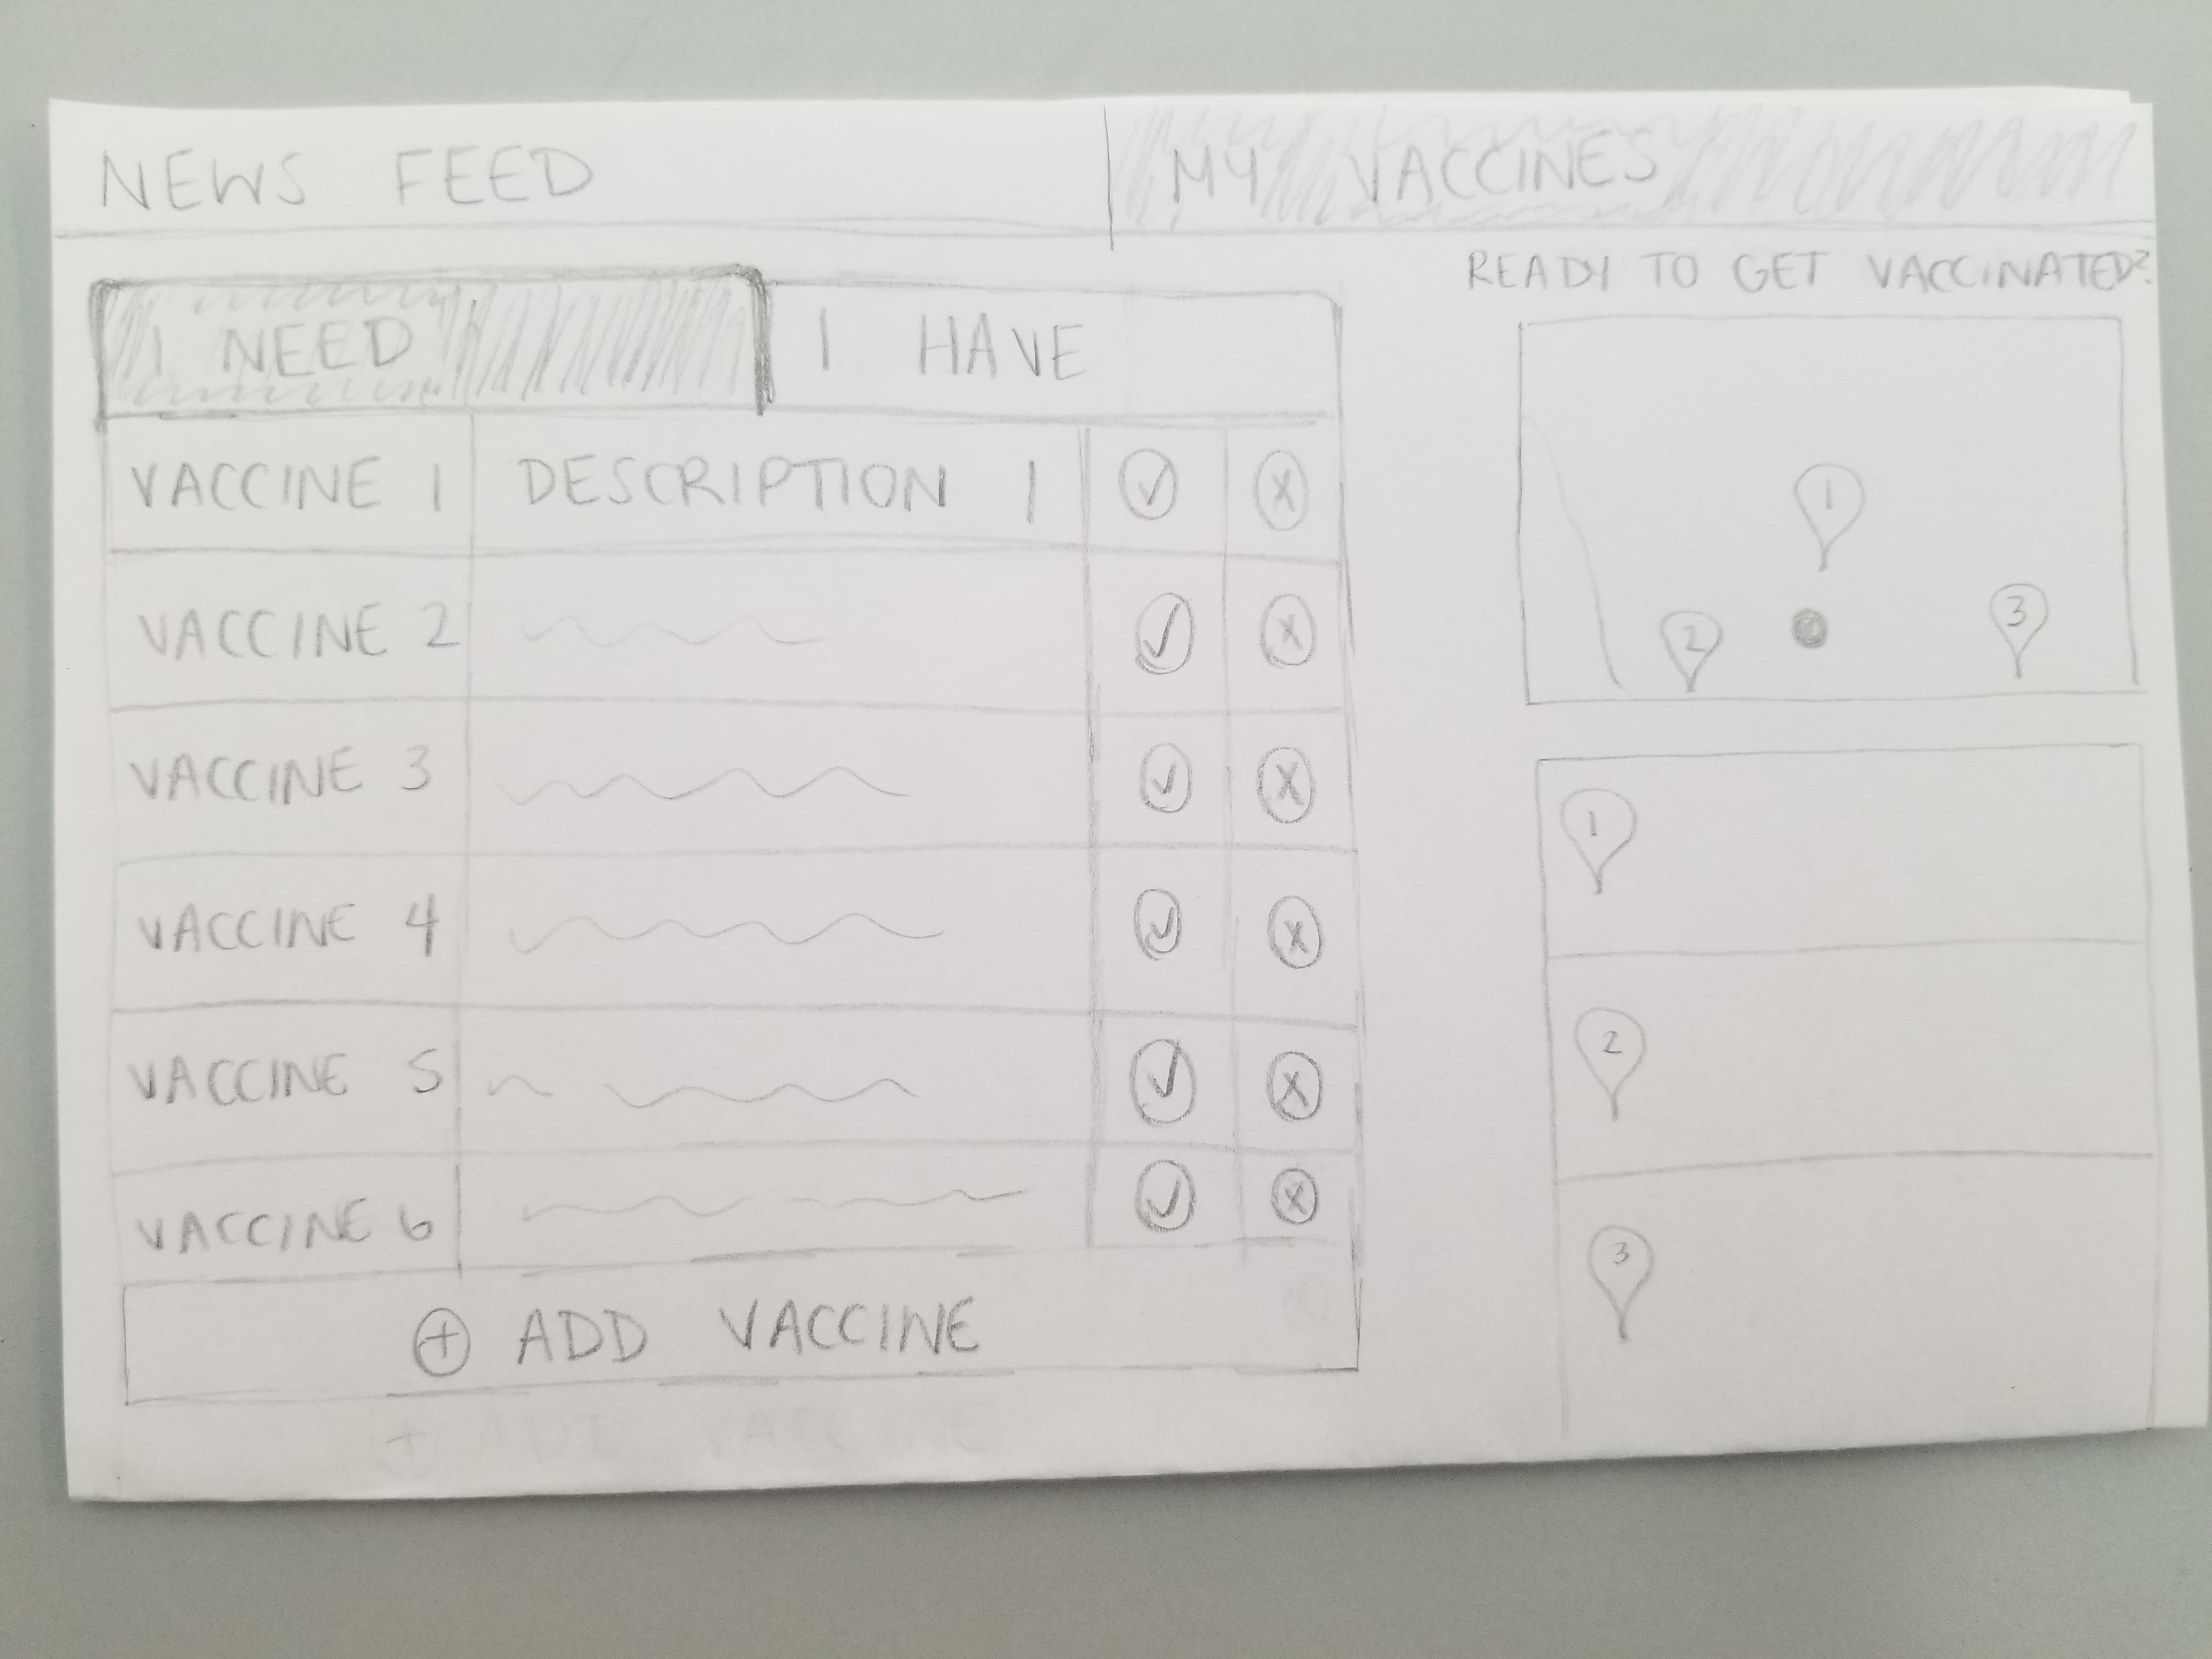 NEWS FEED
MY VACCINES
I NEED
I HAVE
VACCINE 1 DESCRIPTION 1
VACCINE 2
VACCINE 3
VACCINE 4
VACCINE 5
VACCINE 6
+ ADD VACCINE
+ ADD VACCINE
READY TO GET VACCINATED?
1
2
3
1
2
3